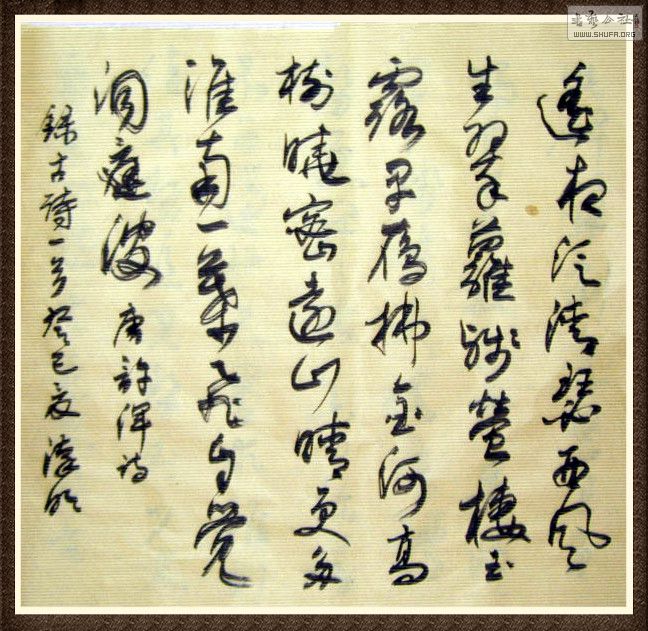 書藝公社
WWW.SHUFA.ORG
遙夜泛清瑟西風
生翠蘿殘螢棲玉
露早雁拂金河高
樹曉密遠山晴更多
淮南一葉飛自覺
洞庭波 唐許渾詩
錄古詩一首癸巳夏